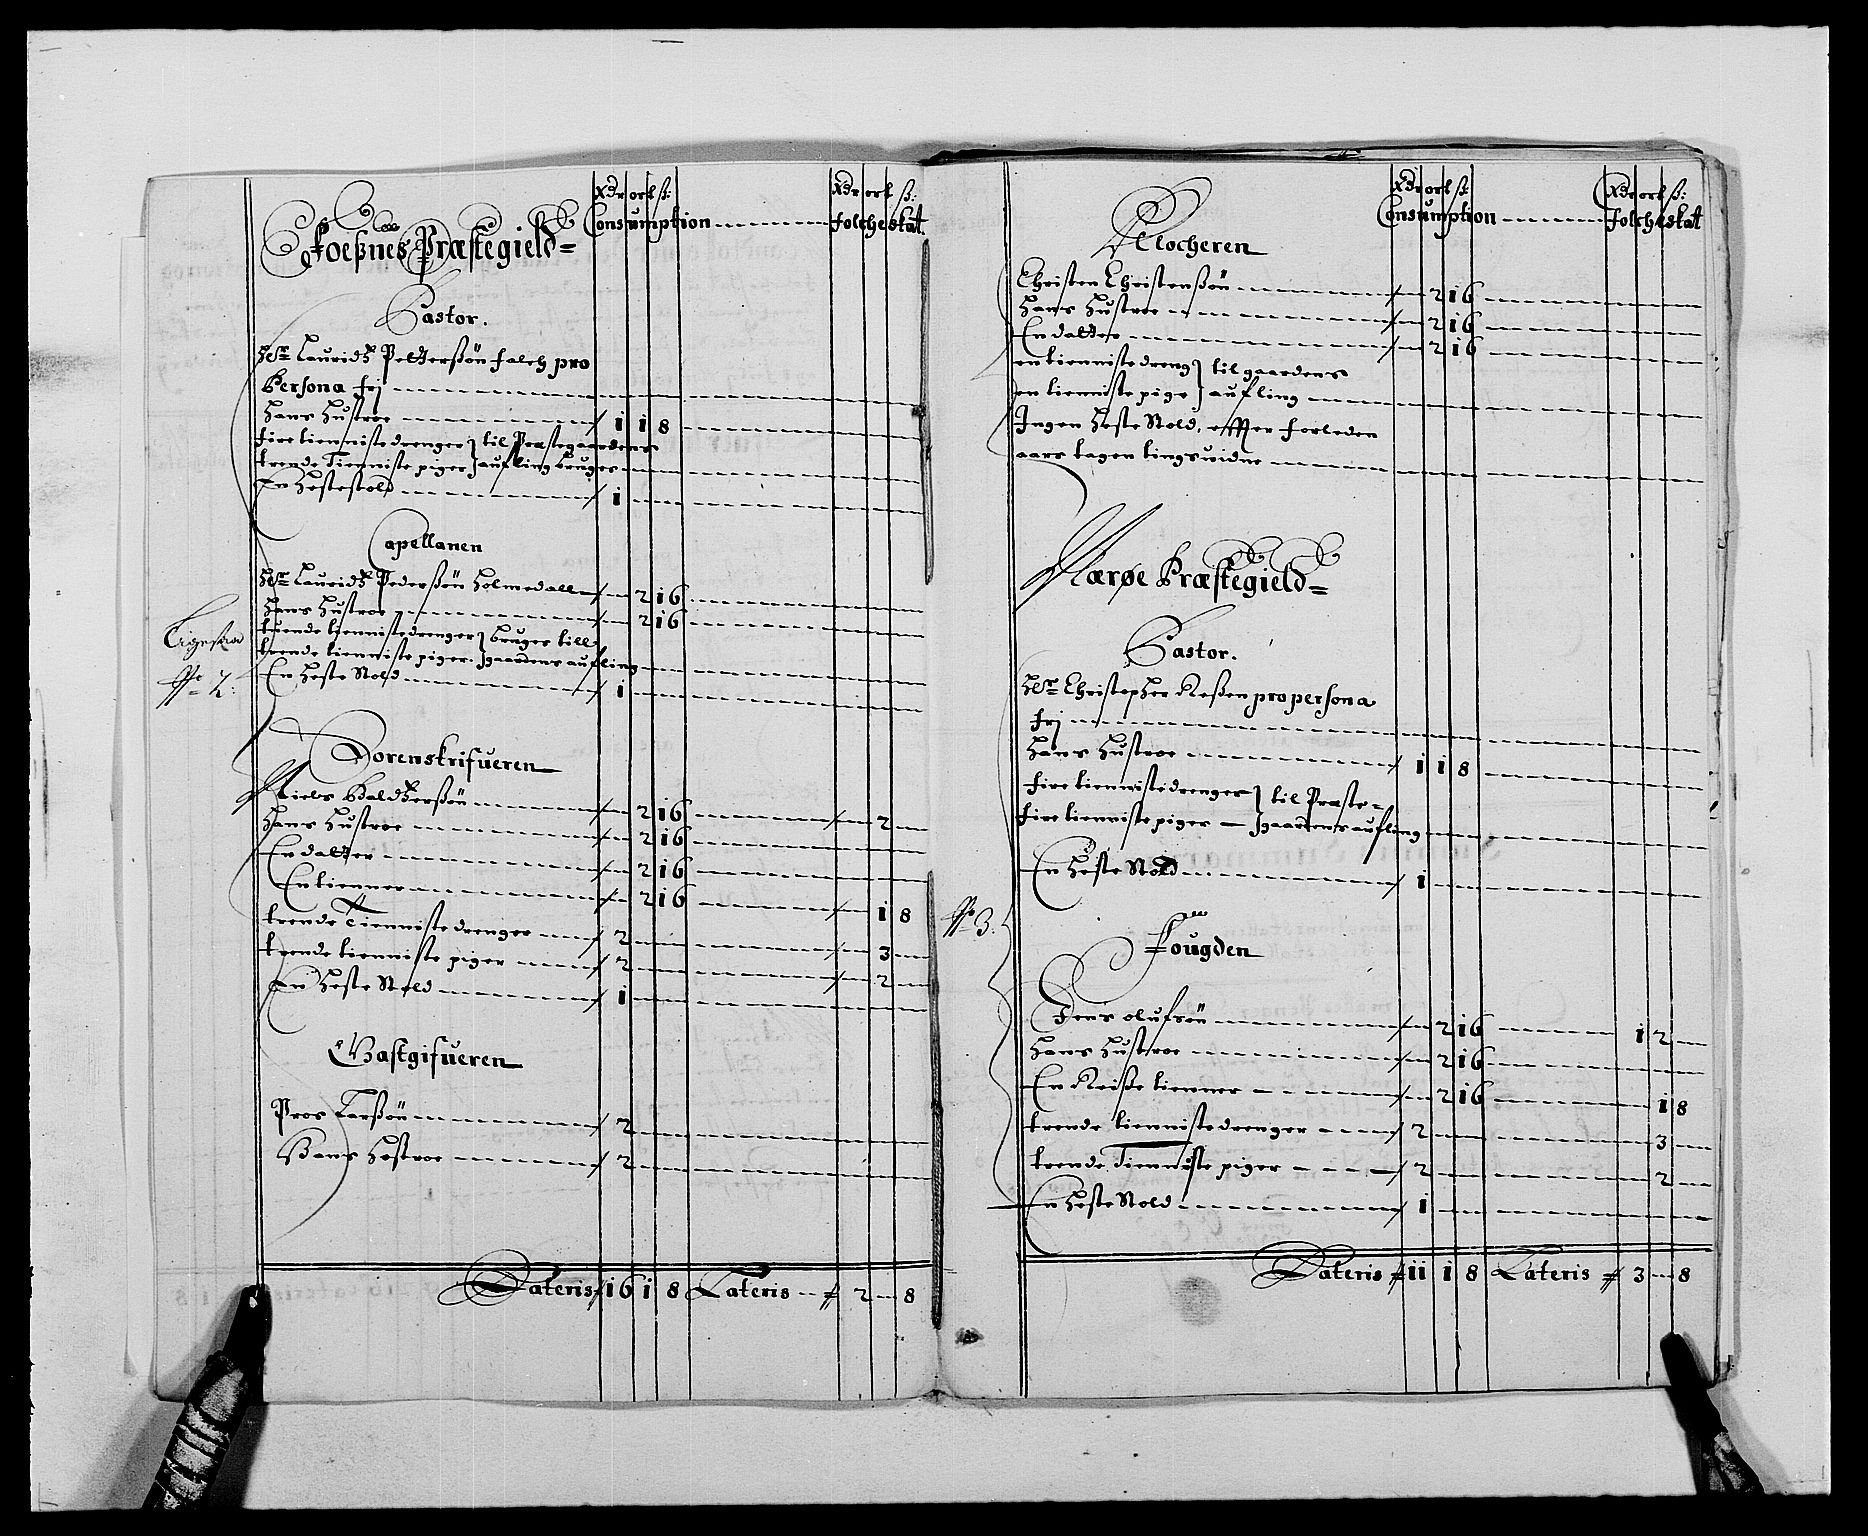 Xdr ort ß: Xdr ort ß:
Consumption Folchestat.
Foeßnes Præstegield=
Pastor.
Hr Lauridtz Pettersøn Falch pro
Persona frj
Hans Hustroe / 1 1 8
fire tiennistedrenger } til Præstegaardens
trende Tienniste piger } aufling bruges
En Hestestold / 1
Capellanen
Hr Lauridtz Pederßøn Holmedall / 2 16
Hans Hustroe / 2 16
tuende tiennistedrenger } bruges till
trende tienniste piger. } gaardens aufling
En Heste Stold / 1
No 2:
Sorenskrifueren
Niels Baldtzerßøn / 2 16 / 2
Hans Hustroe / 2 16
En datter / 2 16
En tienner / 2 16 / 1 8
trende Tienniste drenger / 2 / 3
trende tienniste piger / 2 / 2
En Heste Stold / 1
Giastgifueren
Pros Larßøn / 2
Hans Hostroe / 2
Lateris / 16 1 8 Lateris / 2 8
Xdr ort ß: Xdr ort ß:
Consumption Folchestat
Clocheren
Christen Christenßøn / 2 16
Hans Hustroe / 2 16
En datter / 2 16
en tiennistedreng } til gaardens
en tienniste pige } aufling
Ingen Heste Stold, effter forleden
aars tagen tingsvidne
Nærøe Præstegield=
Pastor.
Hr Christopher Neßen pro persona
frj
Hans Hustroe 1 1 8
fire tiennistedrenger } til Præste=
fire tienniste piger } gaardens aufling
En Heste Stold / 1
No 3.
Fougden
Jens olufsøn / 2 16 1 2
Hans Hustroe / 2 16
En Reiße tienner / 2 16 1 8
trende tiennistedrenger / 2 3
trende Tienniste piger / 2 2
En Heste Stold / 1
Lateris / 11 1 8 Lateris / 3 8